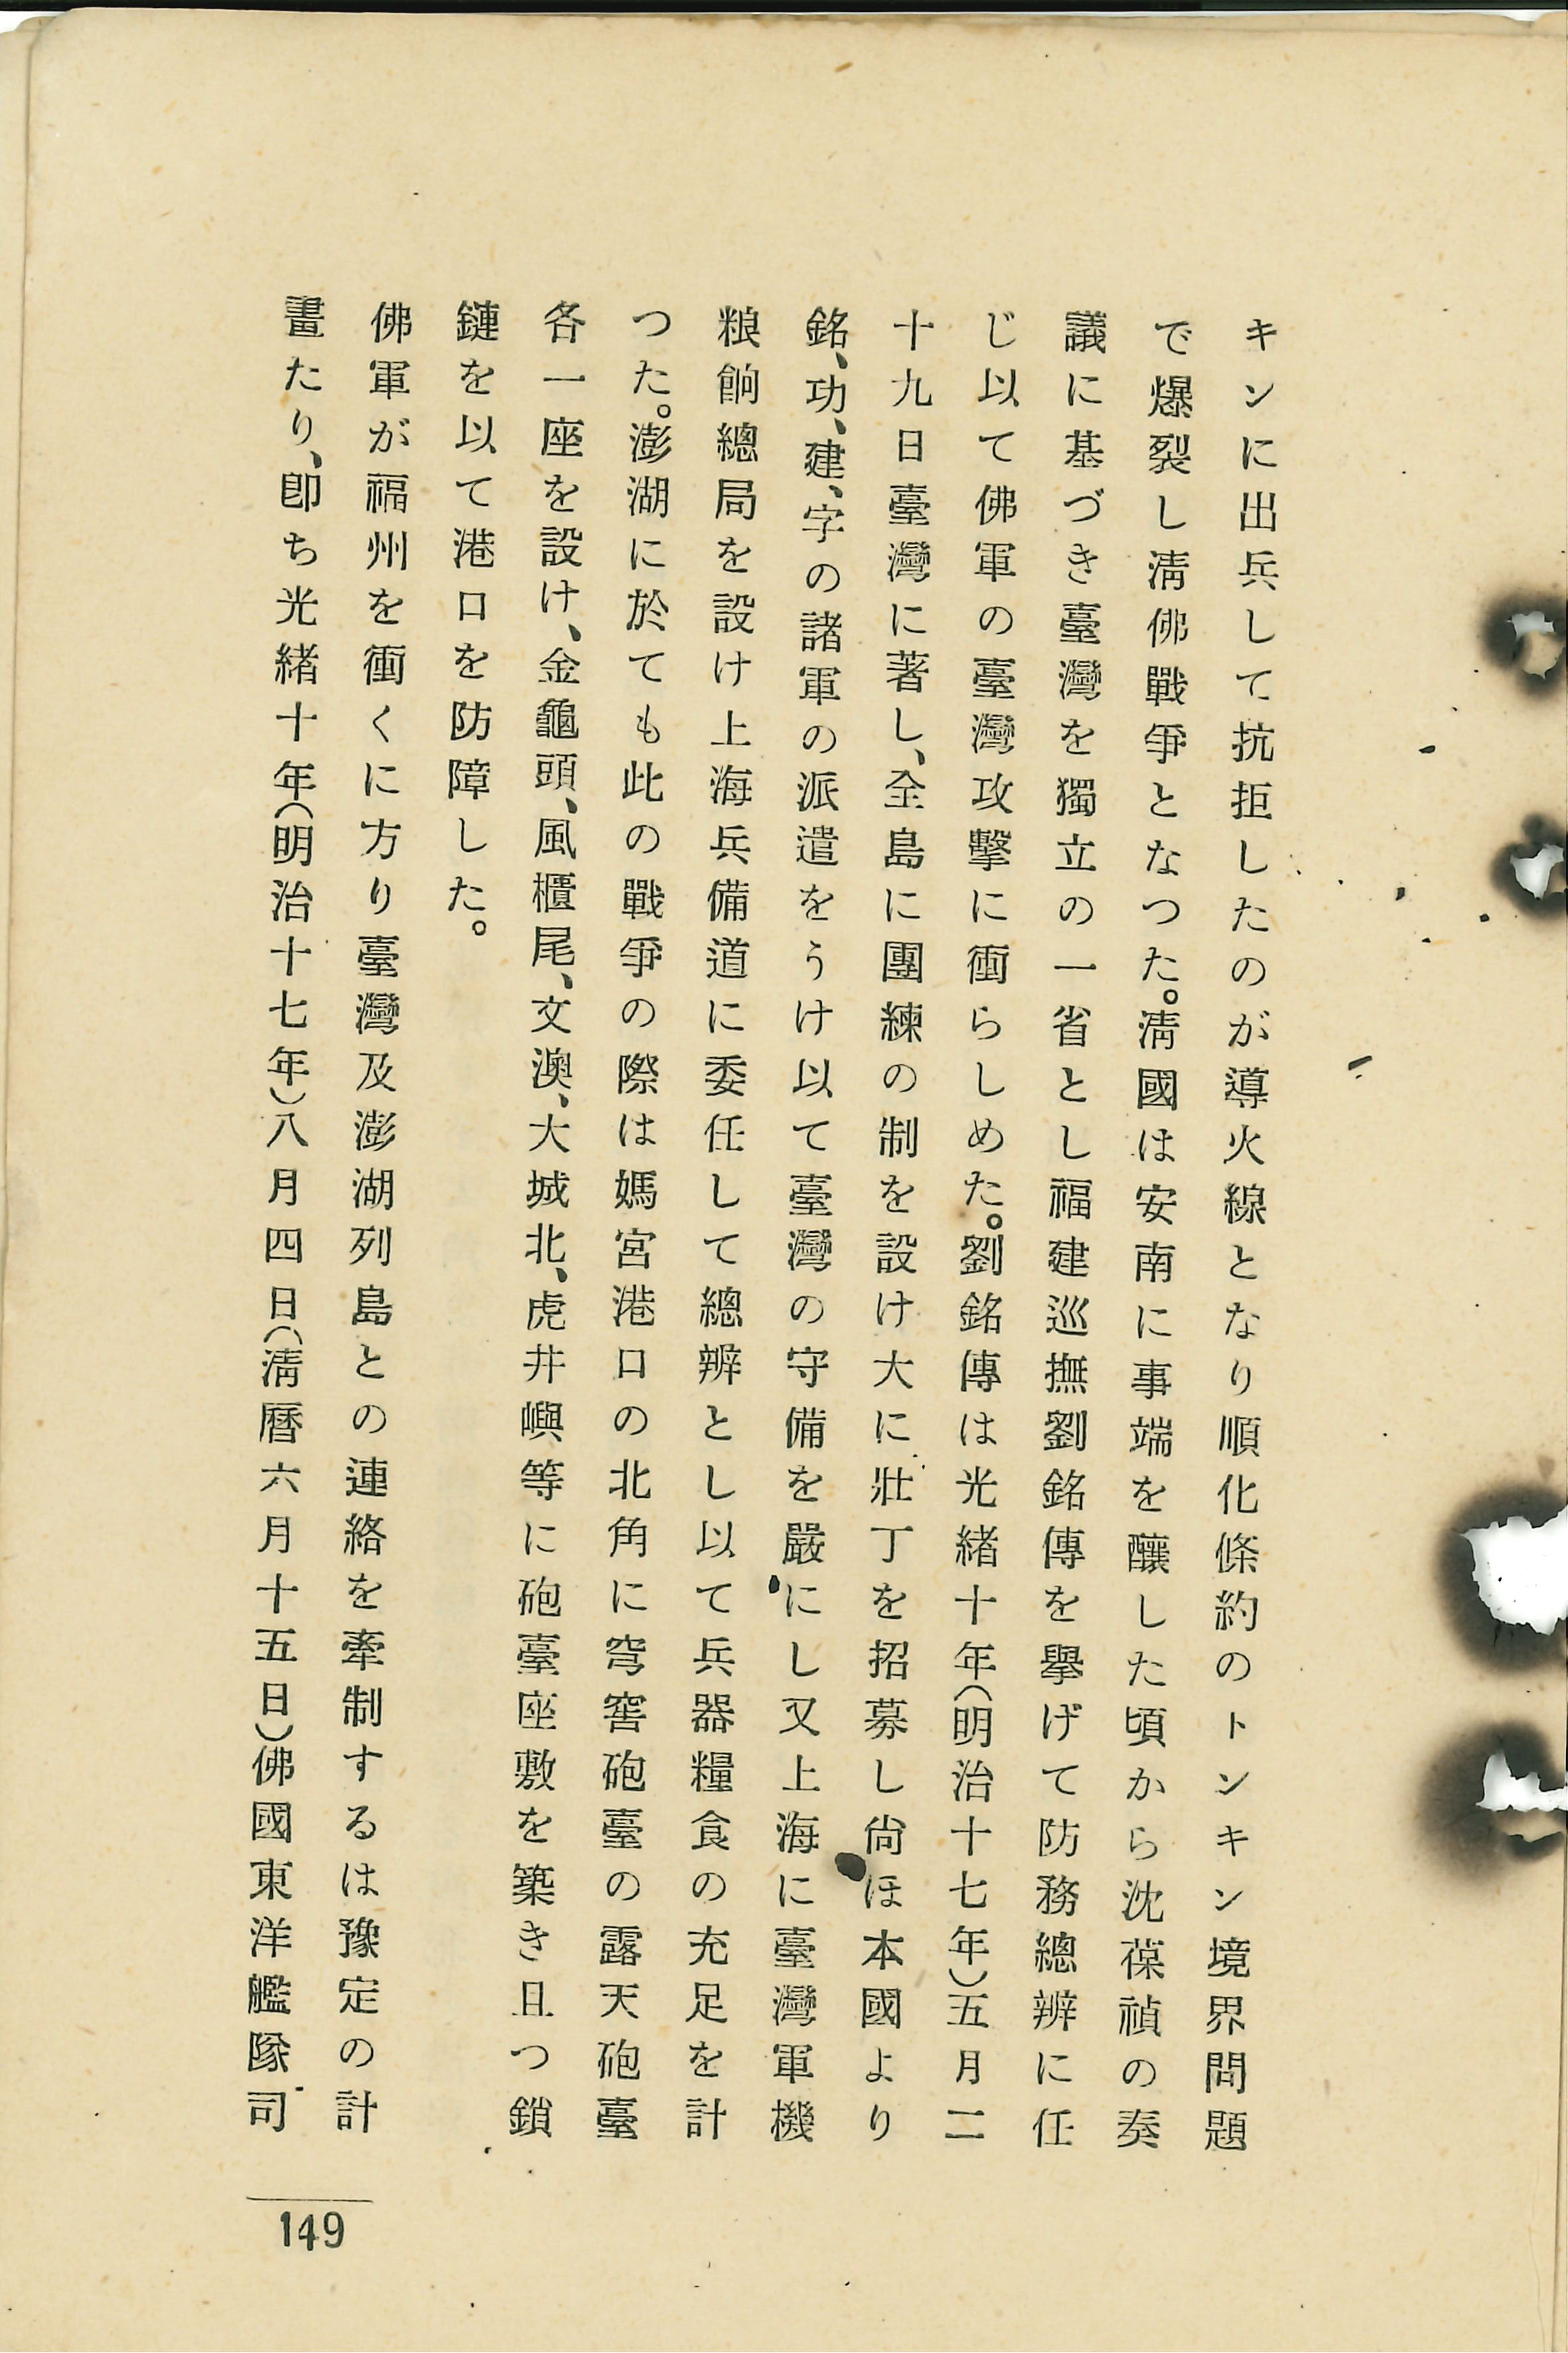 キンに出兵して抗拒したのが導火線となり順化條約のトンキン境界問題
で爆裂し淸佛戰爭となつた。淸國は安南に事端を釀した頃から沈葆禎の奏
議に基づき臺灣を獨立の一省とし福建巡撫劉銘傳を擧げて防務總辨に任
じ以て佛軍の臺灣攻擊に衝らしめた。劉銘傳は光緒十年(明治十七年)五月二
十九日臺灣に著し、全島に團練の制を設け大に壯丁を招募し尙ほ本國より
銘、功、建、字の諸軍の派遣をうけ以て臺灣の守備を嚴にし又上海に臺灣軍機
粮餉總局を設け上海兵備道に委任して總辨とし以て兵器糧食の充足を計
つた。澎湖に於ても此の戰爭の際は媽宮港口の北角に穹窖砲臺の露天砲臺
各一座を設け、金龜頭、風櫃尾、文澳、大城北、虎井嶼等に砲臺座敷を築き且つ鎖
鏈を以て港口を防障した。
佛軍が福州を衝くに方り臺灣及澎湖列島との連絡を牽制するは豫定の計
畫たり、卽ち光緒十年(明治十七年)八月四日(淸曆六月十五日)佛國東洋艦隊司
149